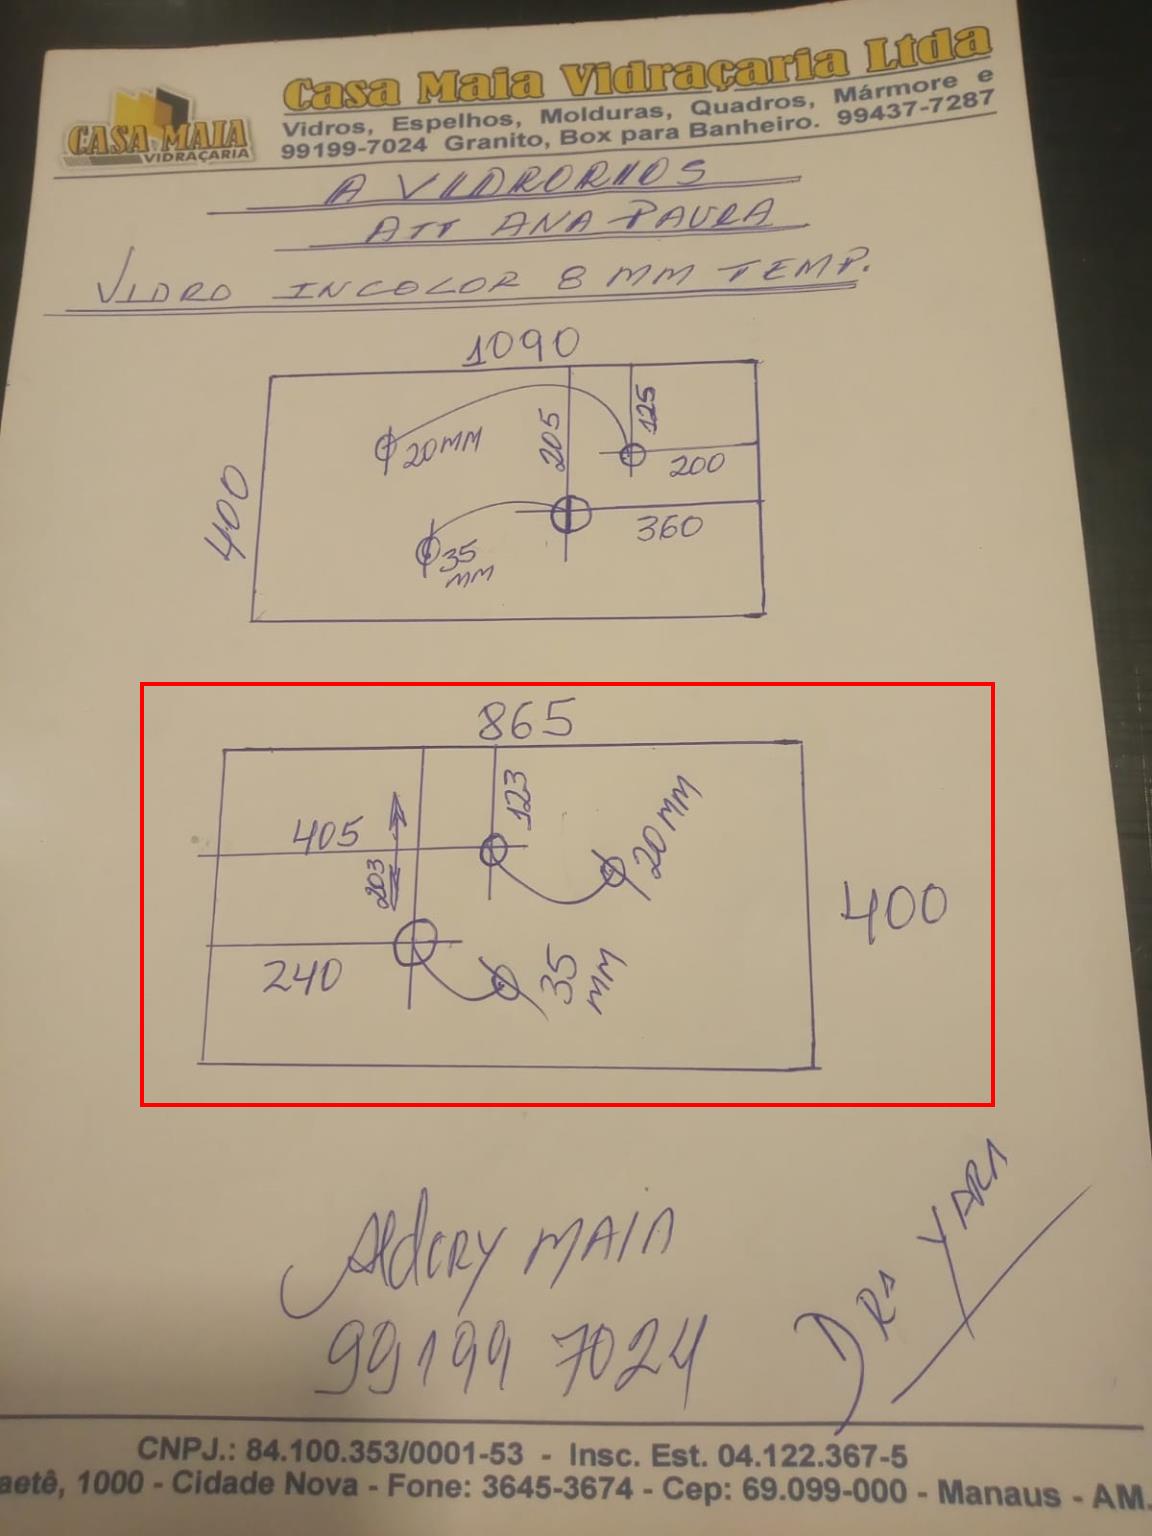 CASA MAIA
VIDRAÇARIA
Casa Maia Vidraçaria Ltda
Vidros, Espelhos, Molduras, Quadros, Mármore e
99199-7024 Granito, Box para Banheiro. 99437-7287
A VIDRORIOS
ATT ANA PAULA
VIDRO INCOLOR 8 MM TEMP.
1090
400
Φ20MM
205
125
200
360
Φ35
MM
865
405
123
203
Φ20MM
400
240
Φ35
MM
Aldery MAIA
99199 7024
DRA YARA
CNPJ.: 84.100.353/0001-53 - Insc. Est. 04.122.367-5
aetê, 1000 - Cidade Nova - Fone: 3645-3674 - Cep: 69.099-000 - Manaus - AM.